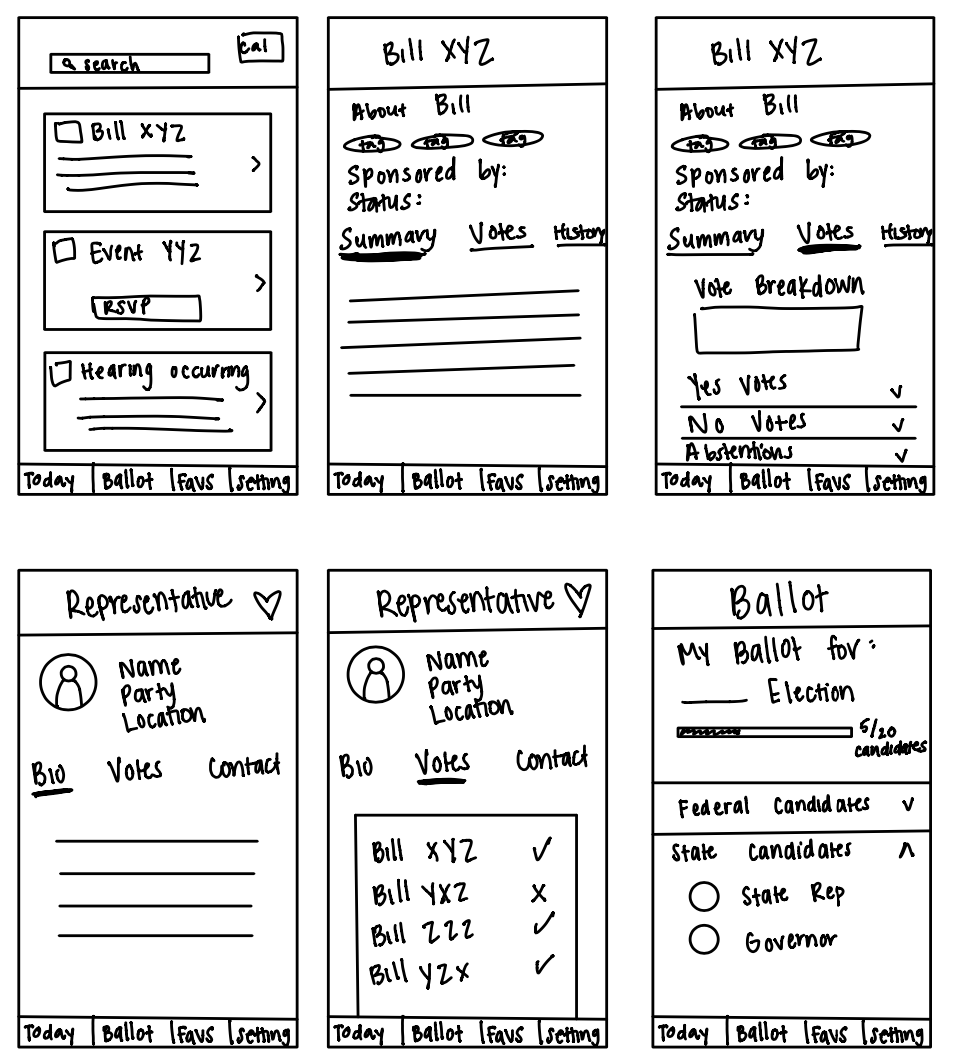 search
cal
Bill XYZ
Event YYZ
RSVP
Hearing occurring
Today Ballot Favs Setting
Bill XYZ
About Bill
tag tag tag
Sponsored by:
Status:
Summary Votes History
Today Ballot Favs Setting
Bill XYZ
About Bill
tag tag tag
Sponsored by:
Status:
Summary Votes History
Vote Breakdown
Yes Votes
No Votes
Abstentions
Today Ballot Favs Setting
Representative
Name
Party
Location
Bio Votes Contact
Today Ballot Favs Setting
Representative
Name
Party
Location
Bio Votes Contact
Bill XYZ ✓
Bill YXZ x
Bill ZZZ ✓
Bill YZX ✓
Today Ballot Favs Setting
Ballot
My Ballot for:
____ Election
5/20
candidates
Federal Candidates
State Candidates
State Rep
Governor
Today Ballot Favs Setting